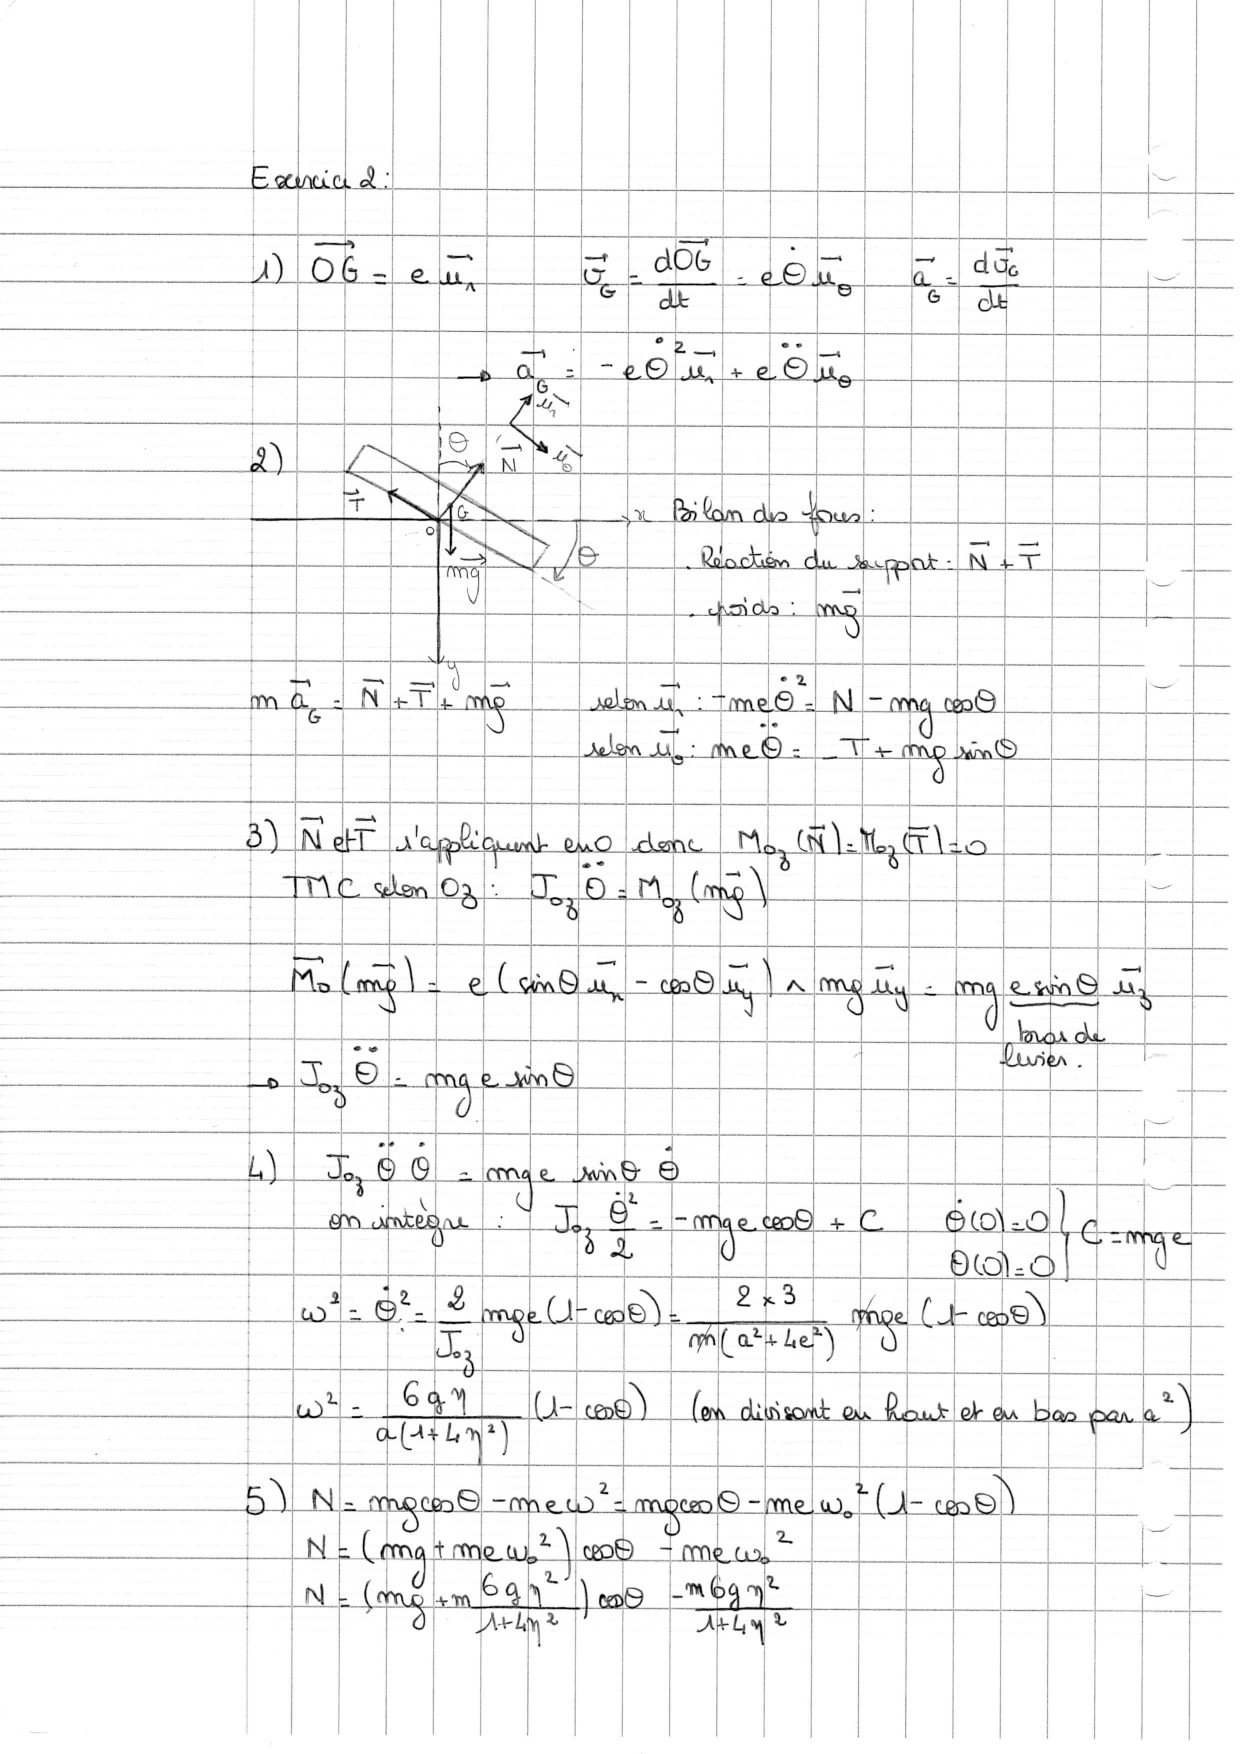 Exercice 2:
1) $\overrightarrow{OG} = e\,\vec{u_r}$   $\vec{v}_G = \frac{d\overrightarrow{OG}}{dt} = e\dot{\theta}\,\vec{u_\theta}$   $\vec{a}_G = \frac{d\vec{v}_G}{dt}$
→ $\vec{a}_G = -e\dot{\theta}^2\,\vec{u_r} + e\ddot{\theta}\,\vec{u_\theta}$
2)
$\vec{u_r}$
θ $\vec{N}$ $\vec{u_\theta}$
$\vec{T}$ G x
O θ
$m\vec{g}$
y
Bilan des forces:
. Réaction du support: $\vec{N} + \vec{T}$
. poids: $m\vec{g}$
$m\vec{a}_G = \vec{N} + \vec{T} + m\vec{g}$   selon $\vec{u_r}$ : $-me\dot{\theta}^2 = N - mg\cos\theta$
selon $\vec{u_\theta}$: $me\ddot{\theta} = -T + mg\sin\theta$
3) $\vec{N}$ et $\vec{T}$ s'appliquent en O donc $M_{Oz}(\vec{N}) = M_{Oz}(\vec{T}) = 0$
TMC selon Oz: $J_{Oz}\ddot{\theta} = M_{Oz}(m\vec{g})$
$\vec{M_O}(m\vec{g}) = e(\sin\theta\,\vec{u_x} - \cos\theta\,\vec{u_y}) \wedge mg\,\vec{u_y} = mg\,\underbrace{e\sin\theta}\,\vec{u_z}$
bras de
levier.
→ $J_{Oz}\ddot{\theta} = mge\sin\theta$
4) $J_{Oz}\ddot{\theta}\dot{\theta} = mge\sin\theta\,\dot{\theta}$
on intègre : $J_{Oz}\frac{\dot{\theta}^2}{2} = -mge\cos\theta + C$   $\left.\begin{matrix}\dot{\theta}(0)=0\\ \theta(0)=0\end{matrix}\right\}$ $C = mge$
$\omega^2 = \dot{\theta}^2 = \frac{2}{J_{Oz}}mge(1-\cos\theta) = \frac{2\times 3}{m(a^2+4e^2)}\,mge(1-\cos\theta)$
$\omega^2 = \frac{6g\eta}{a(1+4\eta^2)}(1-\cos\theta)$   (en divisant en haut et en bas par $a^2$)
5) $N = mg\cos\theta - me\omega^2 = mg\cos\theta - me\omega_0^2(1-\cos\theta)$
$N = (mg + me\omega_0^2)\cos\theta - me\omega_0^2$
$N = (mg + m\frac{6g\eta^2}{1+4\eta^2})\cos\theta - \frac{m6g\eta^2}{1+4\eta^2}$